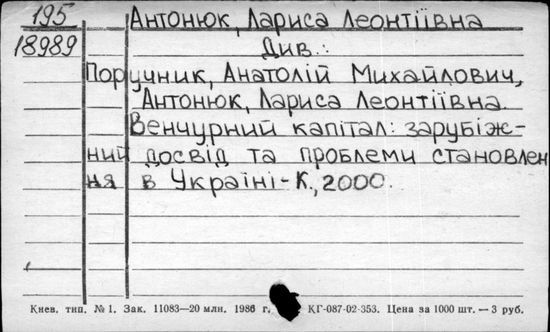 195
18989
Антонюк, Лариса Леонтіївна
Див.:
Поручник, Анатолій Михайлович,
Антонюк, Лариса Леонтіївна.
Венчурний капітал: зарубіж-
ний досвід та проблеми становлен
ня в Україні-К., 2000.
Киев. тип. №1. Зак. 11083—20 млн. 1986 г. КГ-087-02-353. Цена за 1000 шт. — 3 руб.